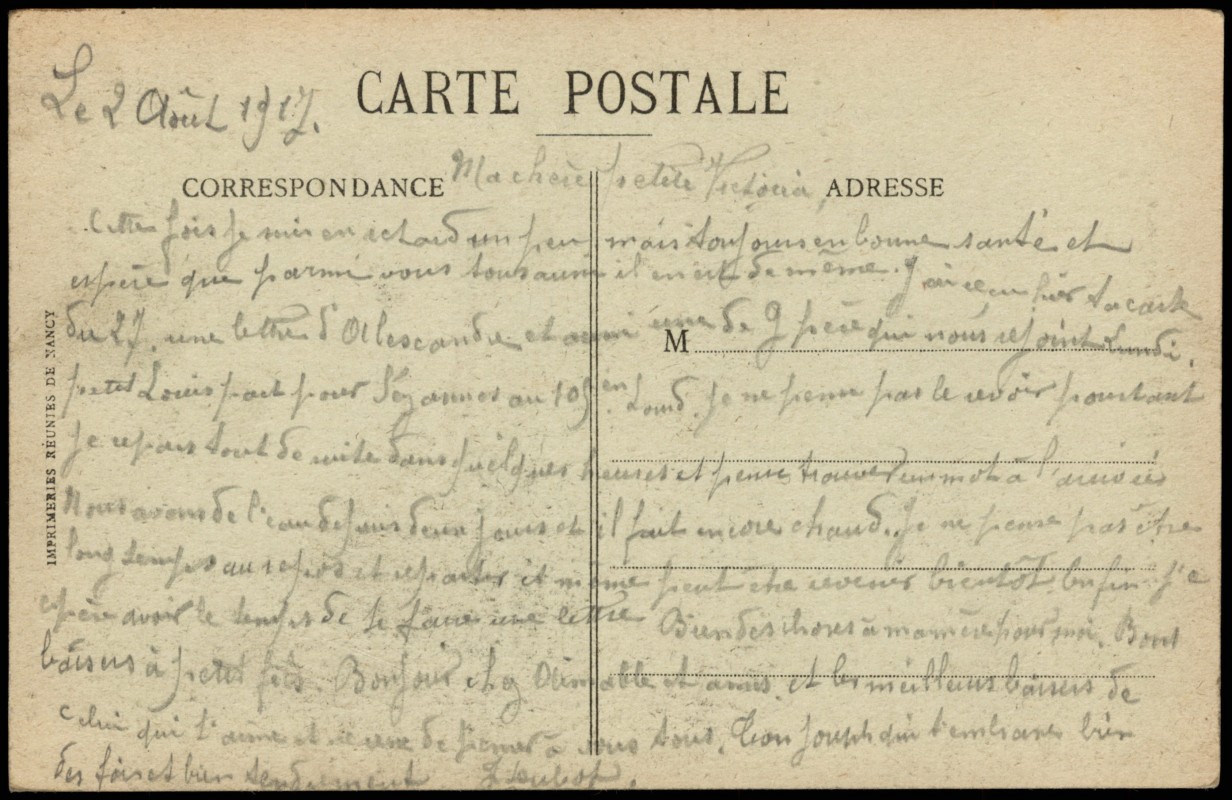 Le 2 Août 1917.
CARTE POSTALE
CORRESPONDANCE
ADRESSE
Ma chère petite Victoria,
Cette fois je suis en retard un peu mais toujours en bonne santé et
espère que parmi vous tous aussi il en est de même. J'ai reçu hier ta carte
du 27, une lettre d'Alescandre et aussi une de g père qui nous rejoint Lundi.
petit Louis part pour Sézannes au 109 en Lourd. Je ne pense pas le revoir pourtant
Je repars tout de suite dans quelques heures et pense trouver un mot à l'arrivée
Nous avons de l'eau depuis deux jours et il fait encore chaud. Je ne pense pas être
longtemps au repos et repartir et même peut être revenir bientôt Enfin j'e
espère avoir le temps de te faire une lettre Bien des choses à ma mère pour moi. Bons
baisers à petit fils. Bonjour chez Aimable et amis. et les meilleurs baisers de
Celui qui t'aime et ne cesse de penser à vous tous. Ton Joseph qui t'embrasse bien
des fois et bien tendrement
M
IMPRIMERIES RÉUNIES DE NANCY